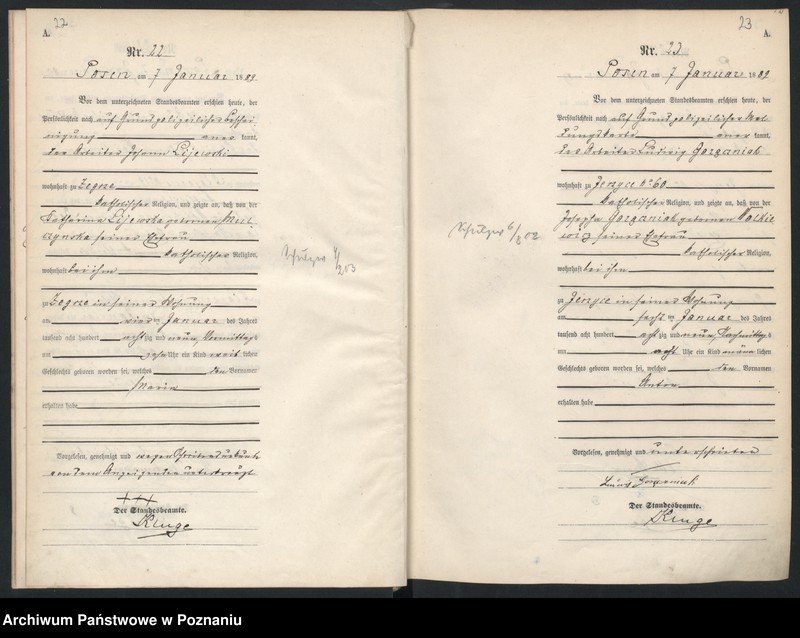 22
A.
Nr. 22
Posen am 7 Januar 1889
Vor dem unterzeichneten Standesbeamten erschien heute, der
Persönlichkeit nach auf Grund polizeilicher Beschei-
nigung aner kannt,
der Arbeiter Johann Lijewski
wohnhaft zu Zegrze
katholischer Religion, und zeigte an, daß von der
Katharina Lijewska geborner
seiner Ehefrau
katholischer Religion,
wohnhaft bei ihm
zu Zegrze in seiner Wohnung
am vier ten Januar des Jahres
tausend acht hundert acht zig und neun, Vormittags
um zehn Uhr ein Kind weib lichen
Geschlechts geboren worden sei, welches den Vornamen
Maria
erhalten habe
Vorgelesen, genehmigt und wegen Schreibensunkunde
von dem Anzeigenden unterkreuzt
+++
Der Standesbeamte.
Kluge
23
A.
Nr. 23
Posen am 7 Januar 1889
Vor dem unterzeichneten Standesbeamten erschien heute, der
Persönlichkeit nach auf Grund polizeilicher Mel-
dungskarte aner kannt,
der Arbeiter Ludwig Gorzaniak
wohnhaft zu Jerzyce No 60
katholischer Religion, und zeigte an, daß von der
Josepha Gorzaniak geborner Walkie
wicz seiner Ehefrau
katholischer Religion,
wohnhaft bei ihm
zu Jerzyce in seiner Wohnung
am sechs ten Januar des Jahres
tausend acht hundert acht zig und neun, Nachmittags
um acht Uhr ein Kind männ lichen
Geschlechts geboren worden sei, welches den Vornamen
Anton
erhalten habe
Vorgelesen, genehmigt und unterschrieben
Der Standesbeamte.
Kluge
Archiwum Państwowe w Poznaniu